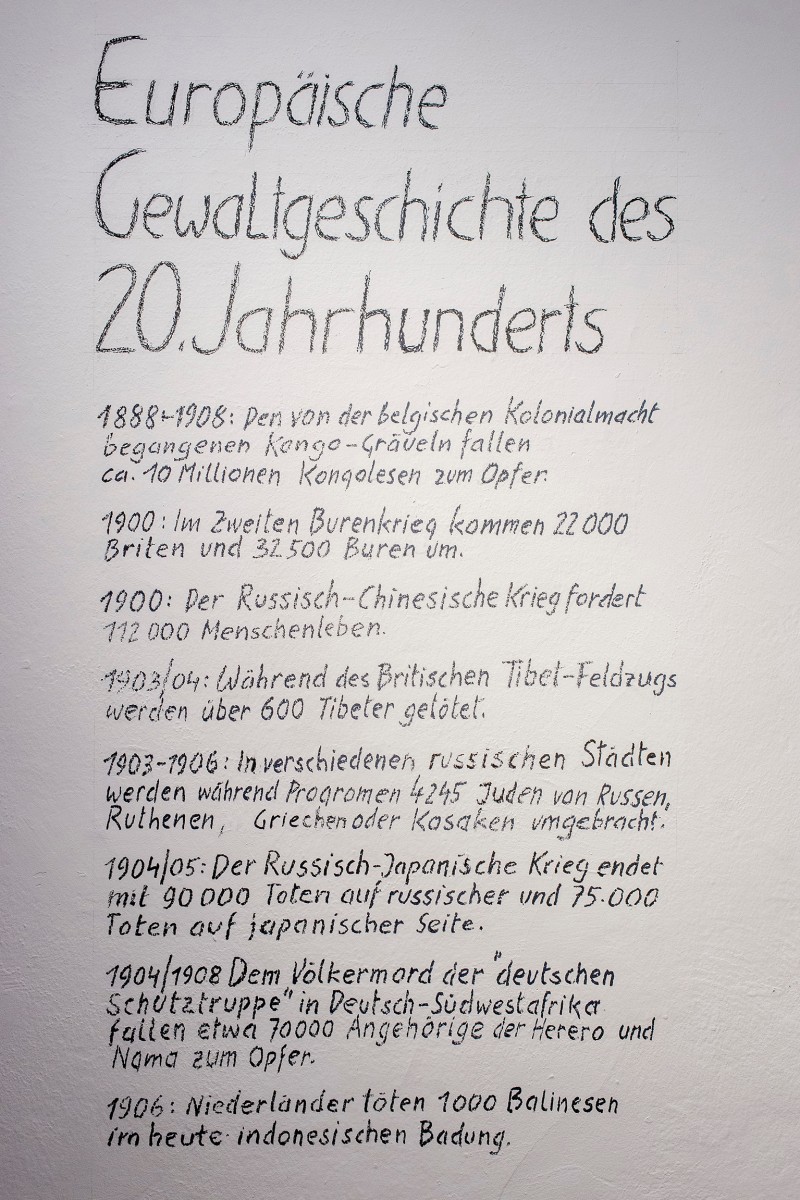 Europäische
Gewaltgeschichte des
20. Jahrhunderts
1888-1908: Den von der belgischen Kolonialmacht
begangenen Kongo-Gräueln fallen
ca. 10 Millionen Kongolesen zum Opfer.
1900: Im Zweiten Burenkrieg kommen 22000
Briten und 32500 Buren um.
1900: Der Russisch-Chinesische Krieg fordert
112 000 Menschenleben.
1903/04: Während des Britischen Tibet-Feldzugs
werden über 600 Tibeter getötet.
1903-1906: In verschiedenen russischen Städten
werden während Progromen 4245 Juden von Russen,
Ruthenen, Griechen oder Kosaken umgebracht.
1904/05: Der Russisch-Japanische Krieg endet
mit 90000 Toten auf russischer und 75.000
Toten auf japanischer Seite.
1904/1908 Dem Völkermord der "deutschen
Schutztruppe" in Deutsch-Südwestafrika
fallen etwa 70000 Angehörige der Herero und
Nama zum Opfer.
1906: Niederländer töten 1000 Balinesen
im heute indonesischen Badung.